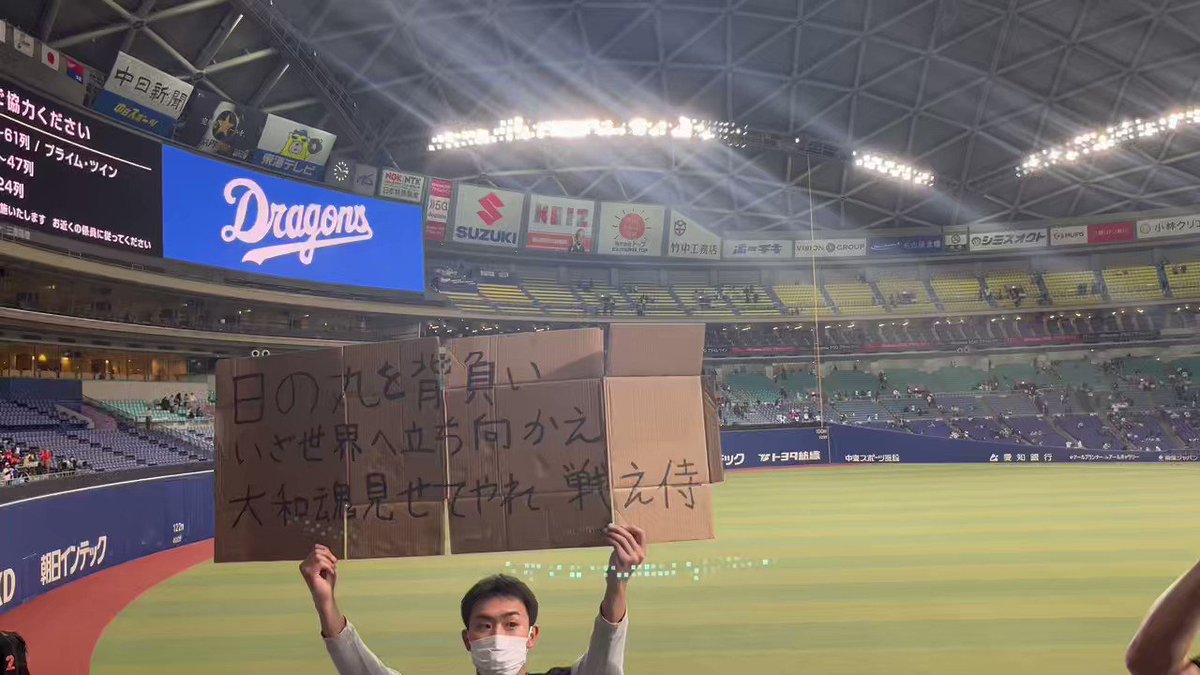 ご協力ください
～61列 / プライム・ツイン
～47列
24列
施いたします お近くの係員に従ってください
中日新聞
東海テレビ
Dragons
NTK
日本特殊陶業
5G
SUZUKI
REIZ
竹中工務店
VISION GROUP
シミズオクト
MUFG
小林クリエ
日の丸を背負い
いざ世界へ立ち向かえ
大和魂見せてやれ 戦え侍
トヨタ紡織
中京スポーツ施設
愛知銀行
122m
朝日インテック
2